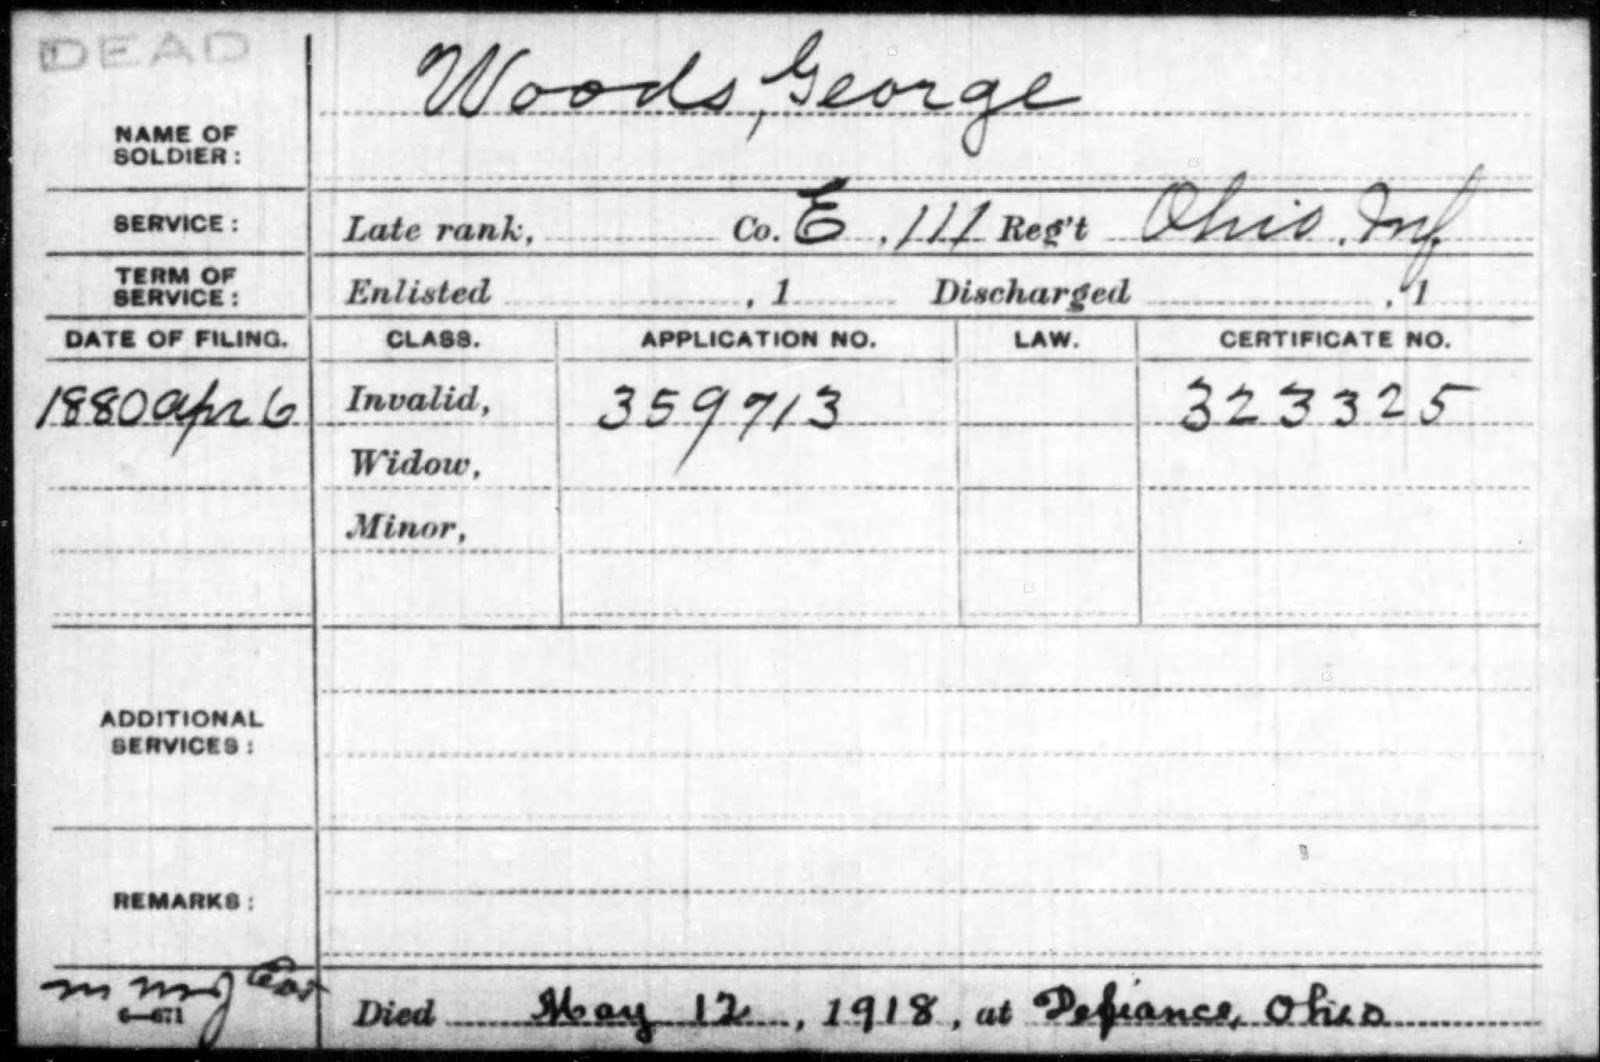 DEAD
Woods, George
NAME OF
SOLDIER:
SERVICE: Late rank, Co. E, 111 Reg't Ohio. Inf.
TERM OF
SERVICE: Enlisted , 1 Discharged , 1
DATE OF FILING. CLASS. APPLICATION NO. LAW. CERTIFICATE NO.
1880 apr 6 Invalid, 359713 323325
Widow,
Minor,
ADDITIONAL
SERVICES:
REMARKS:
6—671
Died May 12, 1918, at Defiance, Ohio